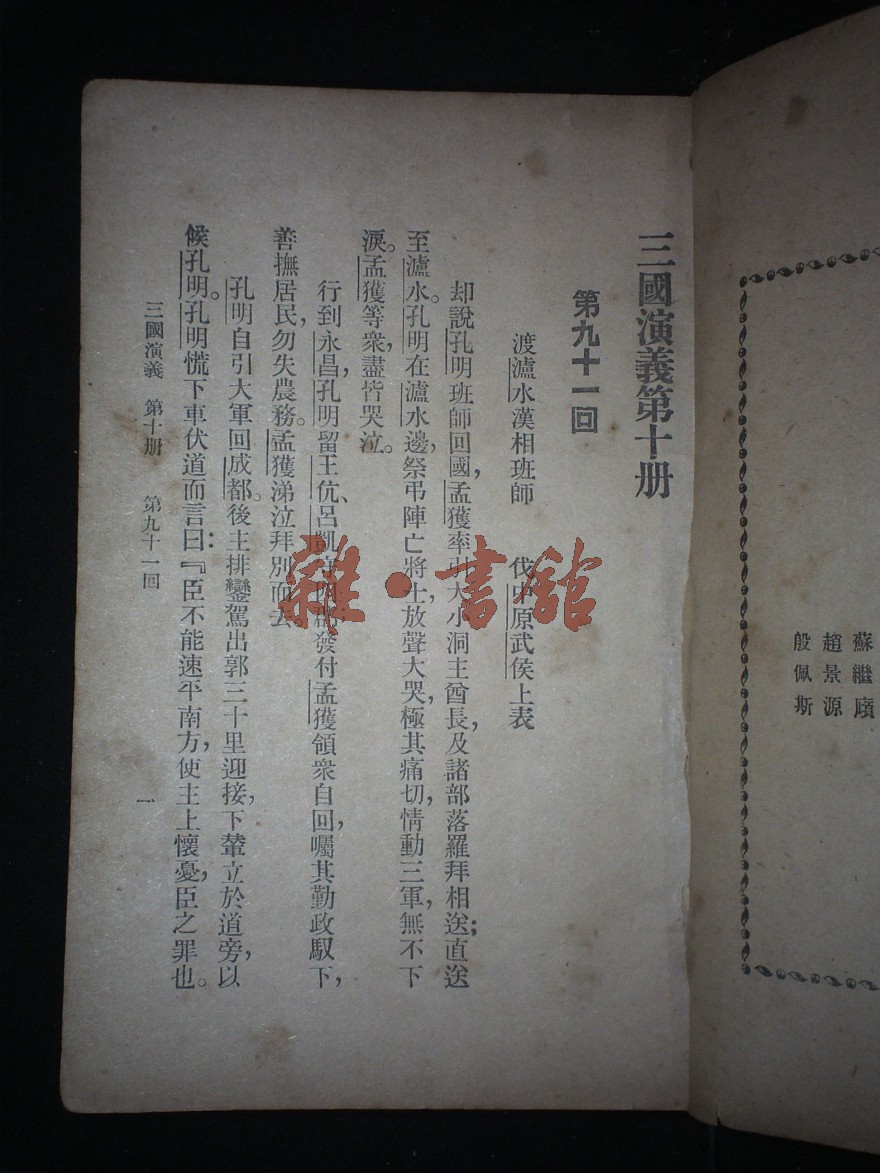 蘇繼廎
趙景源
殷佩斯
三國演義第十册
第九十一回
渡瀘水漢相班師　伐中原武侯上表
却說孔明班師回國，孟獲率引大小洞主酋長，及諸部落羅拜相送；直送
至瀘水。孔明在瀘水邊，祭弔陣亡將士，放聲大哭，極其痛切，情動三軍，無不下
淚。孟獲等衆，盡皆哭泣。
行到永昌，孔明留王伉、呂凱守四郡，發付孟獲領衆自回，囑其勤政馭下，
善撫居民，勿失農務。孟獲涕泣拜別而去。
孔明自引大軍回成都。後主排鑾駕出郭三十里迎接，下輦立於道旁，以
候孔明。孔明慌下車伏道而言曰：『臣不能速平南方，使主上懷憂，臣之罪也。
三國演義　第十册　第九十一回
一
雜·書舘